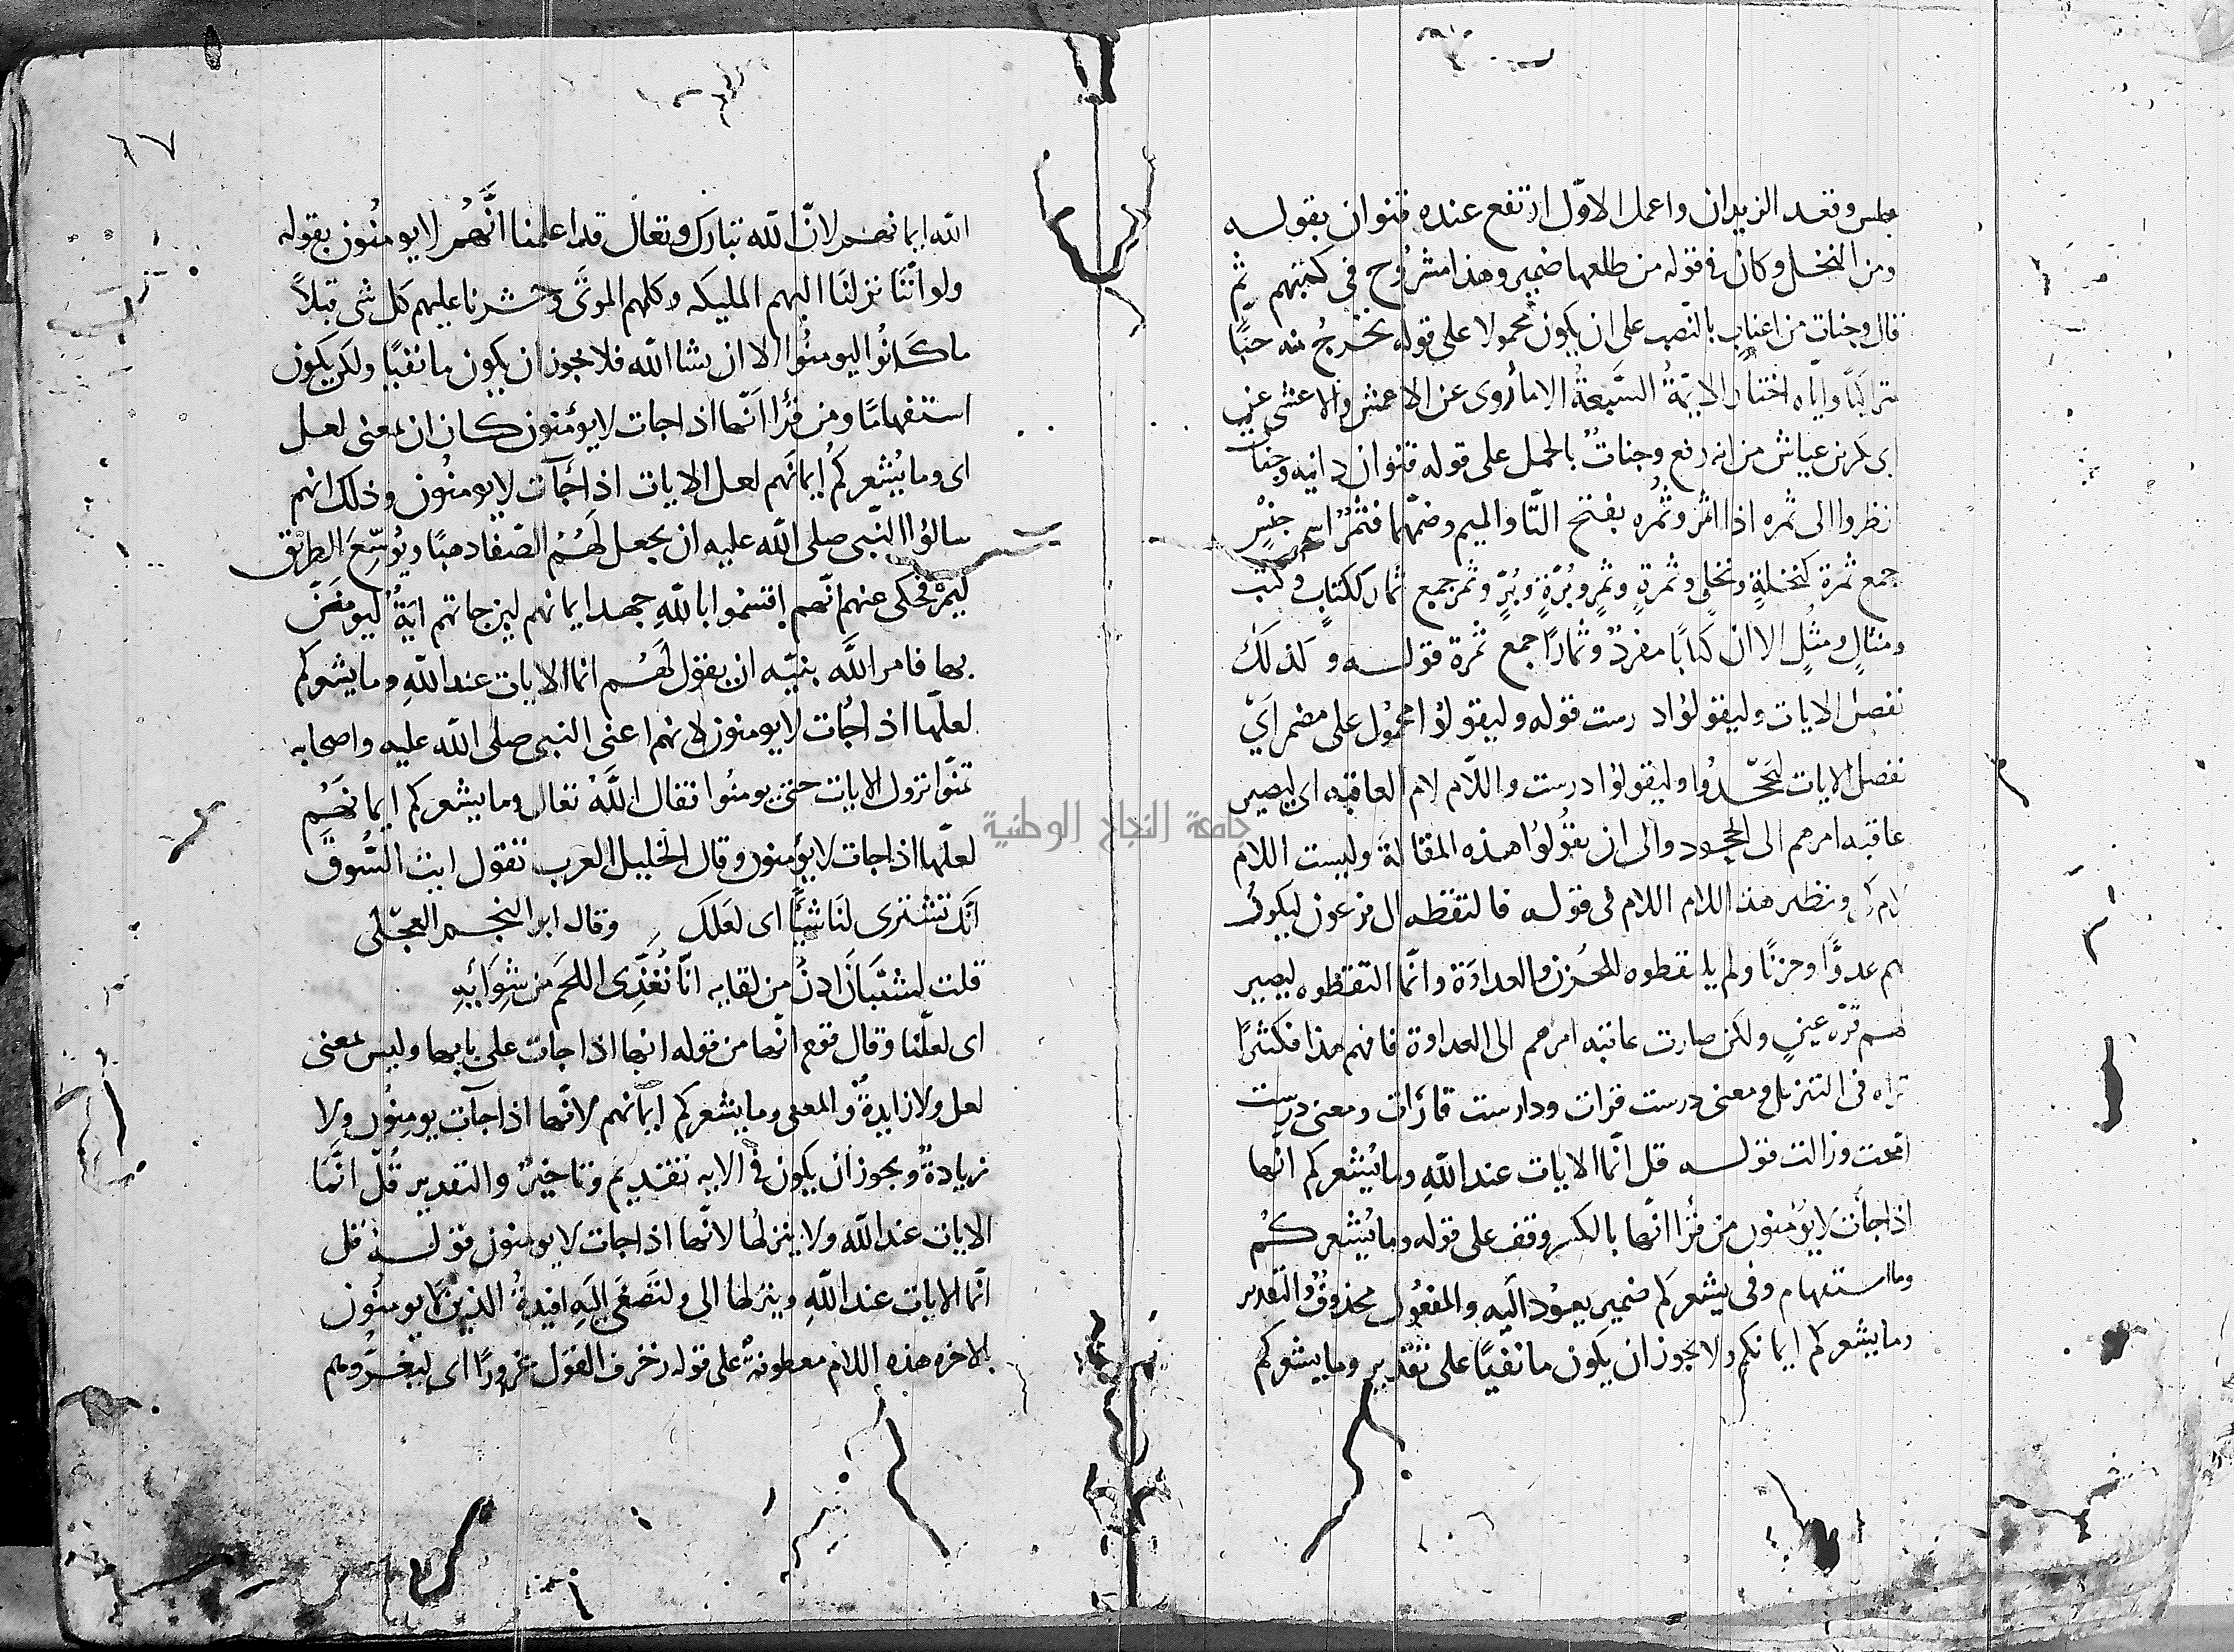 جلس وقعد الزيدان واعمل الاوّل ارتفع عنده قنوان بقوله
ومن النخل وكان في قوله من طلعها ضمير وهذا مشروح في كتبهم ثم
قال وجنات من اعناب بالنصب على ان يكون محمولا على قوله نخرجُ منه حبًّا
متراكبًا وايّاه اختار الايمّةُ السَّبعةُ الا ما رُوى عن الاعمش والاعشى عن
ابى بكر بن عياش من انه رفع وجناتٌ بالحمل على قوله قنوان دانيه وجناتٌ
انظروا الى ثمره اذا اثمر وثُمُره بفتح الثّا والميم وضمّهما فثَمَرٌ اسم جنسٍ
جمع ثمرة كنخلةٍ ونخلٍ وثمرةٍ وثمرٍ وبُرّةٍ وبُرٍّ وثمر جمع ثمار ككتابٍ وكتب
ومثالٍ ومثُلٍ الا ان كتابًا مفردٌ وثمارًا جمع ثمرة قوله وكذلك
نفصل الايات وليقولوا درست قوله وليقولوا محمُول على مضمر اَىْ
نفصل الايات ليَجْحدُوا وليقولوا درست واللّام لام العاقبه اى ليصير
عاقبه امرهم الى الجحود والى ان يقُولوُا هذه المقالة وليست اللام
لام كى ونظير هذا اللام اللام فى قوله فالتقطه ال فرعون ليكونُ
لهم عدوًّا وحزنًا ولم يلتقطوه للحُزن والعداوَة وانّما التقطوه ليصير
لهم قرّه عينٍ ولكن صارت عاقبه امرهم الى العداوة فافهم هذا فكثيرًا
تراه فى التنزيل ومعنى درست قرات ودارست قارَات ومعنى درست
امّحت وزالت قوله قل انّما الايات عند اللّهِ وما يُشعركم انّها
اذا جأت لايُؤمنون من قرُا انّها بالكسر وقف على قوله وما يُشعركُم
وما استفهام وفى يشعركم ضمير يعوُد اليَه والمفعُول محذوفٌ والتّقدير
وما يشعركم ايمانكم ولا يجوز ان يكون ما نفيًا على تقدير وما يشعركم
٦٧
اللّه ايمانهم لانّ اللّه تبارك وتعالَى قد اعلمنا انَّهُم لا يومنُون بقوله
ولو انّنَا نزلنَا اليهم المليكه وكلمهم الموتَى وحشرنا عليهم كل شى قبلاً
ما كَانُوا ليومنُوا الا ان يشا اللّه فلا يجوز ان يكون ما نفيًا ولكن يكون
استفهامًا ومن قرُا اَنّها اذا جات لايوُمنون كان ان بمعنى لعل
اى وما يُشعركمُ ايمانَهم لعل الايات اذا جَآت لا يومنُون وذلك انهم
سالوُا النّبى صلى اللّه عليه ان يجعل لَهُمُ الصّفا ذهبًا ويُوسّعَ الطريْق
فحكى عنهم انّهم اقسمُوا باللّهِ جهد ايمانهم لين جاتهم ايَةٌ ليومنُنّ
بها فامر اللَّه نبيّه ان يقول لَهُم انما الايات عند اللّهِ وما يشعركم
لعلّها اذا جُات لا يومنون لانهم اعنى النبى صلى اللّه عليه واصحابه
تمنّوا نزول الايات حتى يومنُوا فقال اللَّهُ تعالى وما يشعركم ايمانهُم
لعلّها اذا جات لا يُؤمنون وقال الخليل العرب تقول ايت السُّوقَ
انّك تشترى لنَا شيًّا اى لعَلكَ وقال ابو النجم العجْلى
قلت لشيْبَانَ ادنُ من لقايه انَّا نُغَذّى اللحَم مِن شِوَائِهِ
اى لعلّنا وقال قوم انّها من قوله انها اذا جات على بابها وليس بمعنى
لعل ولا زايدةٌ والمعنى وما يشعركم ايمانهم لانّها اذا جآت يومنُون ولا
زيادةٌ ويجوز ان يكون فى الايه تقديم وتاخيرٌ والتقدير قُلْ انَّمَا
الايات عند اللّه ولا ينزلها لانّها اذا جات لا يومنون قوله قل
انّما الايات عند اللّهِ وينزلها الى ولتَصغَى اليَهِ افيدةُ الذين لا يومنُون
بالاخره هذه اللام معطوفةٌ على قوله زخرف القول غرورًا اى ليغرُّوهم
جامعة النجاح الوطنية